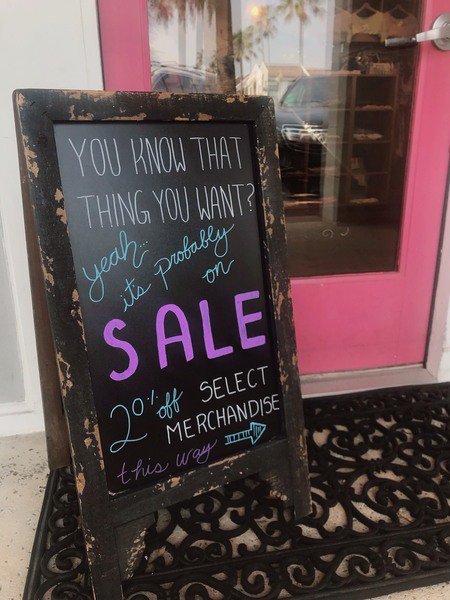 YOU KNOW THAT
THING YOU WANT?
yeah...
it's probably
on
SALE
20% off SELECT
MERCHANDISE
this way